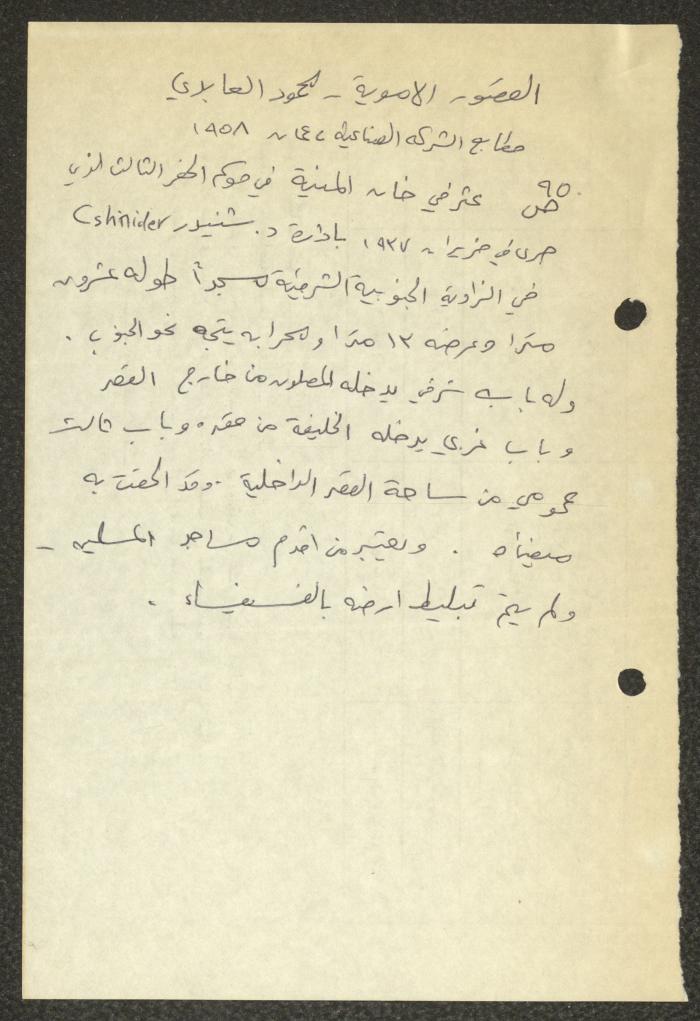 القصور الاموية - محمود العابدي
مطابع الشركة الصناعية عمان ١٩٥٨
ص ٩٥ عثر في خان المنية في موسم الحفر الثالث الذي
جرى في حزيران ١٩٣٧ بادارة د. شنيدر Cshnider
في الزاوية الجنوبية الشرقية مسجداً طوله عشرون
مترا وعرضه ١٣ مترا ومحرابه يتجه نحو الجنوب .
وله باب شرقي يدخله المصلون من خارج القصر
وباب غربي يدخله الخليفة من مقره وباب ثالث
عمومي من ساحة القصر الداخلية . وقد الحقت به
ميضأه . ويعتبر من اقدم مساجد المسلمين -
ولم يتم تبليط ارضه بالفسيفساء .